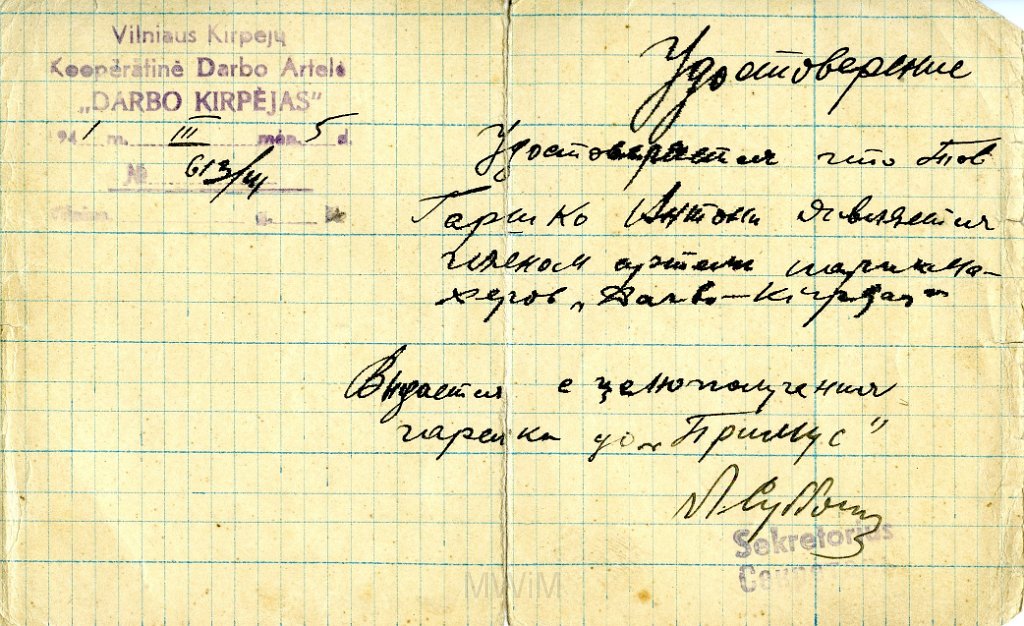 Vilniaus Kirpėjų
Kooperatinė Darbo Artelė
„DARBO KIRPĖJAS"
1941 m. III mėn. 5 d.
№ 613/III
Vilnius
Удостоверение
Удостоверяется что Тов
Гаршко Антони является
членом артели парикма-
херов „Darbo-Kirpėjas"
Выдается с целю получения
гарелки до „Примус"
Sekretorius
MWiM